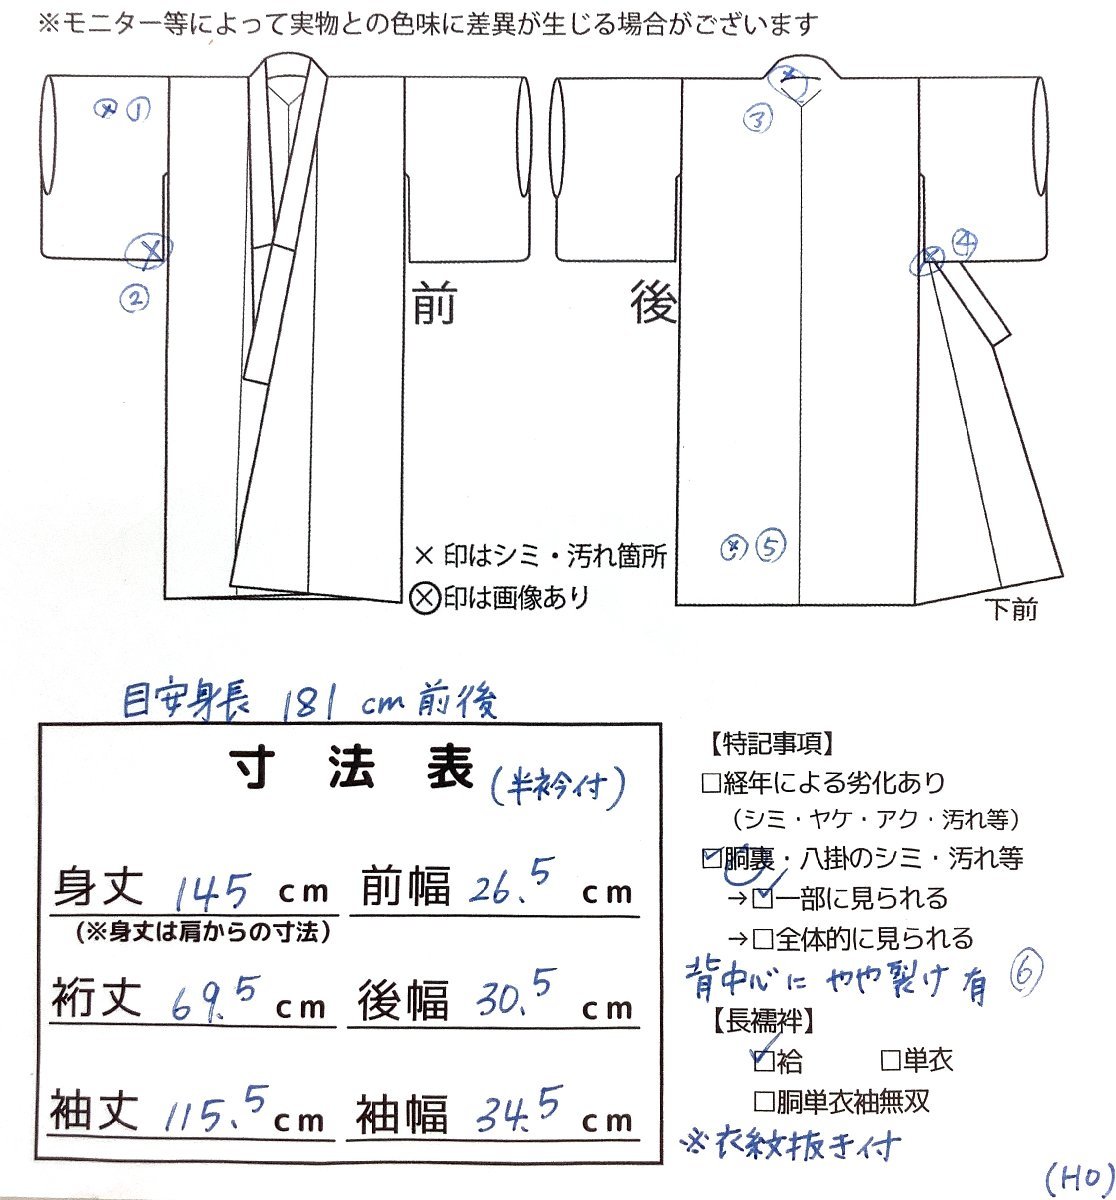 ※モニター等によって実物との色味に差異が生じる場合がございます
× ①
×
②
×
③
× ④
前
後
× ⑤
× 印はシミ・汚れ箇所
⊗印は画像あり
下前
目安身長 181 cm 前後
寸 法 表 (半衿付)
身丈 145 cm 前幅 26.5 cm
(※身丈は肩からの寸法)
裄丈 69.5 cm 後幅 30.5 cm
袖丈 115.5 cm 袖幅 34.5 cm
【特記事項】
□経年による劣化あり
(シミ・ヤケ・アク・汚れ等)
☑胴裏・八掛のシミ・汚れ等
→☑一部に見られる
→□全体的に見られる
背中心に やや裂け 有 ⑥
【長襦袢】
☑袷 □単衣
□胴単衣袖無双
※衣紋抜き付
(HO)